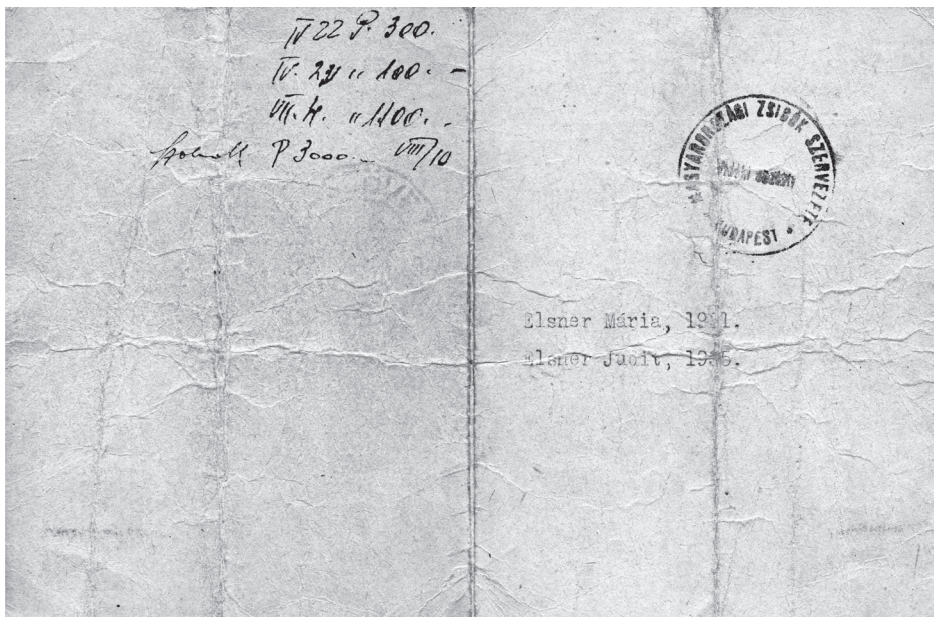 IV 22 P. 300.
IV. 29 " 100. -
VIII. 4. " 1100. -
P 3000. - VIII/10
MAGYARORSZÁGI ZSIDÓK SZERVEZETE
BUDAPEST
Elsner Mária,
Elsner Judit,